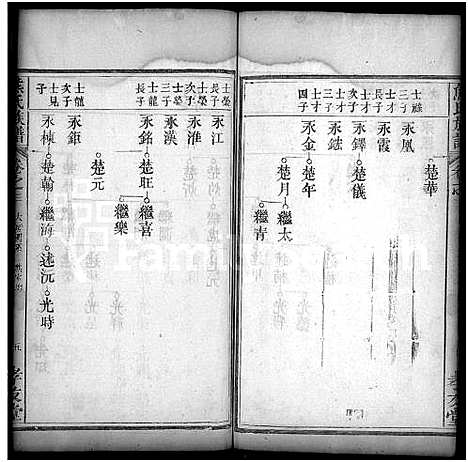 士才
三子
永鳳
楚華
永霞
士才
長子
永鐸
楚儀
士才
次子
永鋕
士才
四子
永金
楚年
楚月
繼太
繼青
士榮
次子
永江
永淮
士榮
三子
永漢
士龍
長子
永銘
楚旺
繼喜
繼樂
士龍
次子
永鉅
楚元
士見
子
永棟
楚翰
繼海
遠沅
光時
氏族譜
卷之三
五
孝友堂